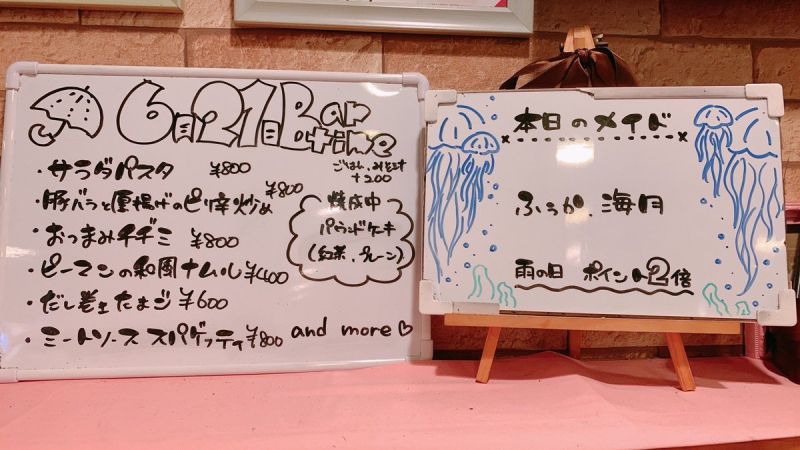 6月21日 Bar time
・サラダパスタ ¥800
ごはん、みそ汁 +200
・豚バラと厚揚げのピリ辛炒め ¥800
・おつまみチヂミ ¥800
・ピーマンの和風ナムル ¥400
・だし巻きたまご ¥600
・ミートソーススパゲッティ ¥800
焼成中
パウンドケーキ
(紅茶、プレーン)
and more♡
本日のメイド
ふうか、海月
雨の日 ポイント2倍